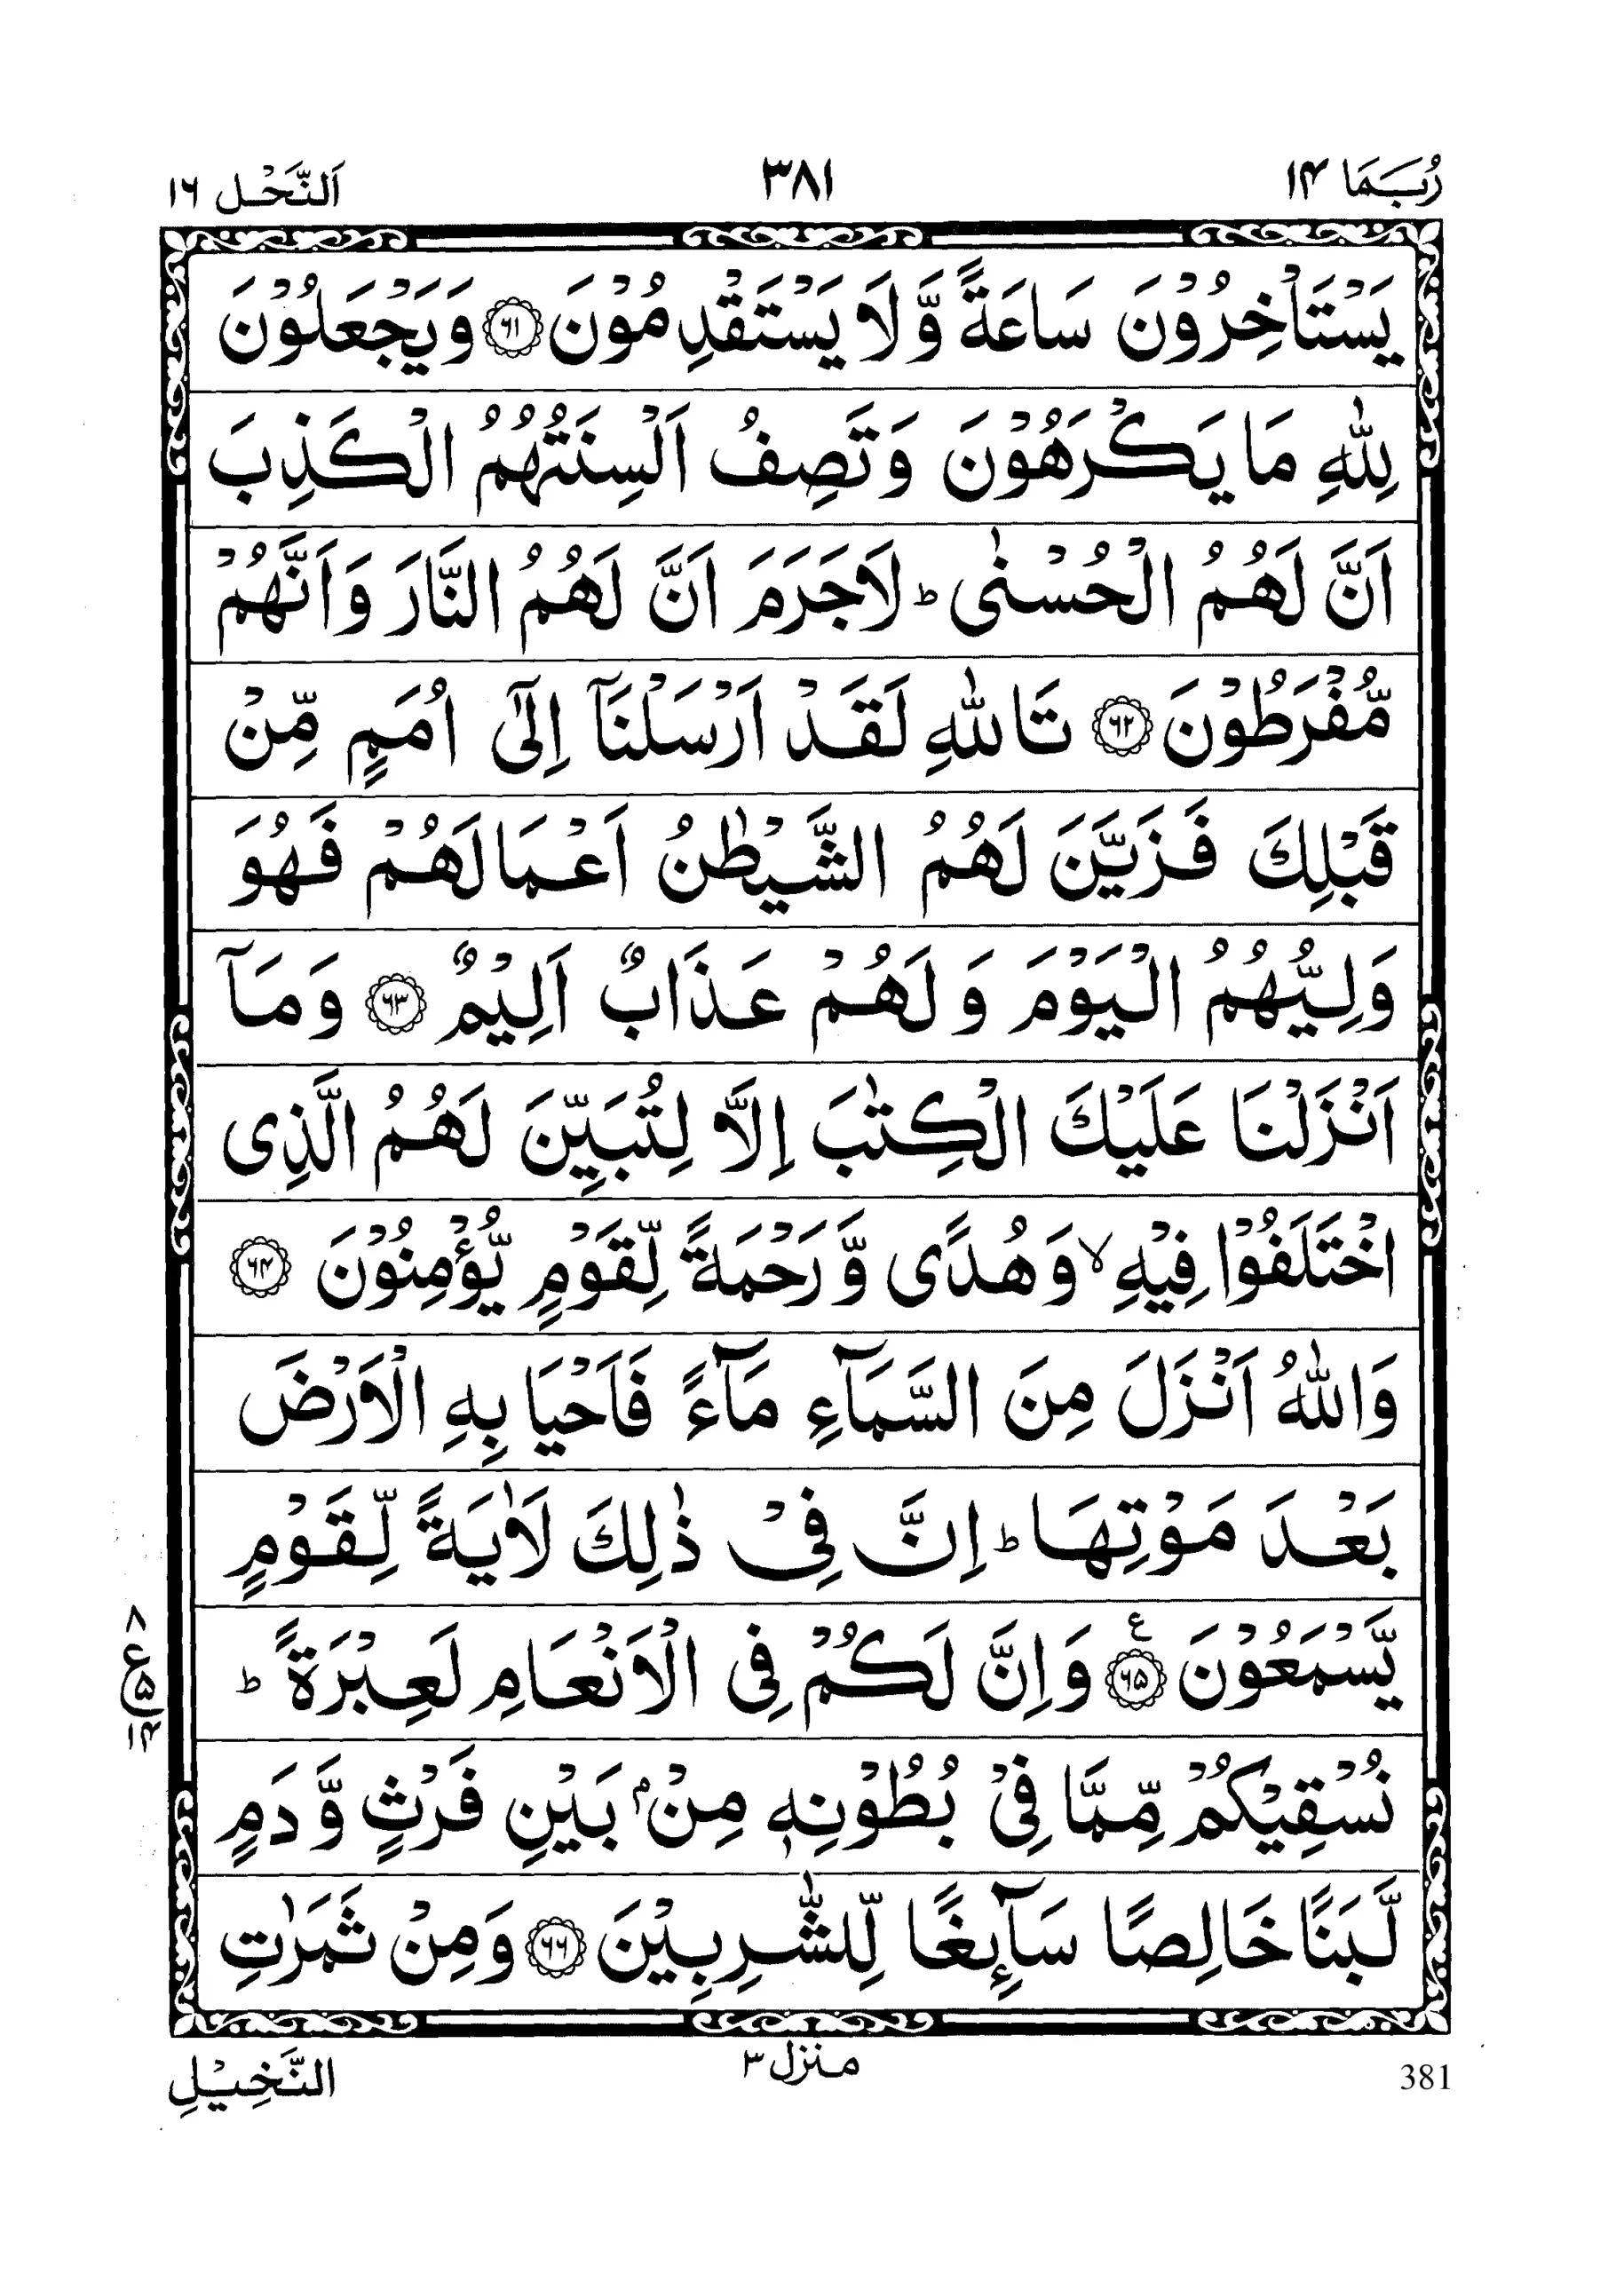 رُبَمَا ١٤
٣٨١
اَلنَّحْل ١٦
يَسْتَاْخِرُوْنَ سَاعَةً وَّلَا يَسْتَقْدِمُوْنَ ﴿٦١﴾ وَيَجْعَلُوْنَ
لِلّٰهِ مَا يَكْرَهُوْنَ وَتَصِفُ اَلْسِنَتُهُمُ الْكَذِبَ
اَنَّ لَهُمُ الْحُسْنٰى ؕ لَاجَرَمَ اَنَّ لَهُمُ النَّارَ وَاَنَّهُمْ
مُّفْرَطُوْنَ ﴿٦٢﴾ تَاللّٰهِ لَقَدْ اَرْسَلْنَاۤ اِلٰۤى اُمَمٍ مِّنْ
قَبْلِكَ فَزَيَّنَ لَهُمُ الشَّيْطٰنُ اَعْمَالَهُمْ فَهُوَ
وَلِيُّهُمُ الْيَوْمَ وَلَهُمْ عَذَابٌ اَلِيْمٌ ﴿٦٣﴾ وَمَاۤ
اَنْزَلْنَا عَلَيْكَ الْكِتٰبَ اِلَّا لِتُبَيِّنَ لَهُمُ الَّذِى
اخْتَلَفُوْا فِيْهِ ۙ وَهُدًى وَّرَحْمَةً لِّقَوْمٍ يُّؤْمِنُوْنَ ﴿٦٤﴾
وَاللّٰهُ اَنْزَلَ مِنَ السَّمَآءِ مَآءً فَاَحْيَا بِهِ الْاَرْضَ
بَعْدَ مَوْتِهَا ؕ اِنَّ فِىْ ذٰلِكَ لَاٰيَةً لِّقَوْمٍ
يَّسْمَعُوْنَ ﴿٦٥﴾ ع وَاِنَّ لَكُمْ فِى الْاَنْعَامِ لَعِبْرَةً ؕ
٨
ع ٥
١٤
نُسْقِيْكُمْ مِّمَّا فِىْ بُطُوْنِهٖ مِنْۢ بَيْنِ فَرْثٍ وَّدَمٍ
لَّبَنًا خَالِصًا سَآئِغًا لِّلشّٰرِبِيْنَ ﴿٦٦﴾ وَمِنْ ثَمَرٰتِ
منزل ٣
النَّخِيْلِ
381